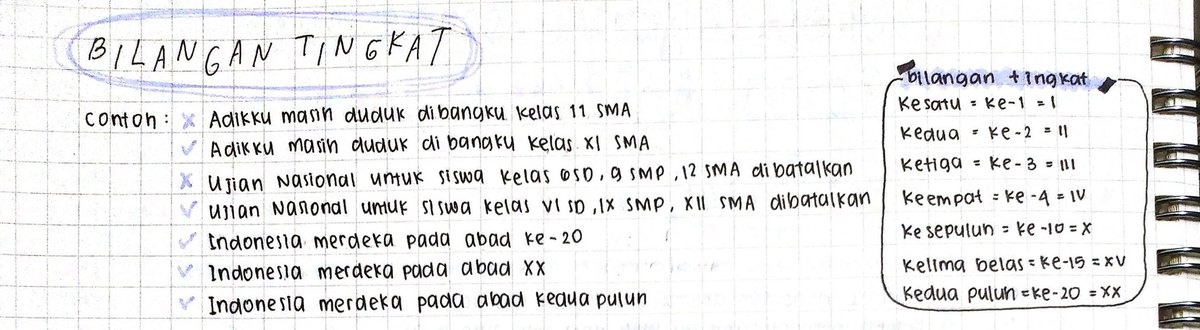 BILANGAN TINGKAT
contoh: × Adikku masih duduk dibangku kelas 11 SMA
✓ Adikku masih duduk di bangku kelas XI SMA
× Ujian Nasional untuk siswa kelas 6SD, 9 SMP, 12 SMA dibatalkan
✓ Ujian Nasional untuk siswa kelas VI SD, IX SMP, XII SMA dibatalkan
✓ Indonesia merdeka pada abad ke-20
✓ Indonesia merdeka pada abad XX
✓ Indonesia merdeka pada abad kedua puluh
bilangan tingkat
Kesatu = ke-1 = I
Kedua = ke-2 = II
Ketiga = ke-3 = III
Keempat = ke-4 = IV
Kesepuluh = ke-10 = X
Kelima belas = ke-15 = XV
Kedua puluh = ke-20 = XX